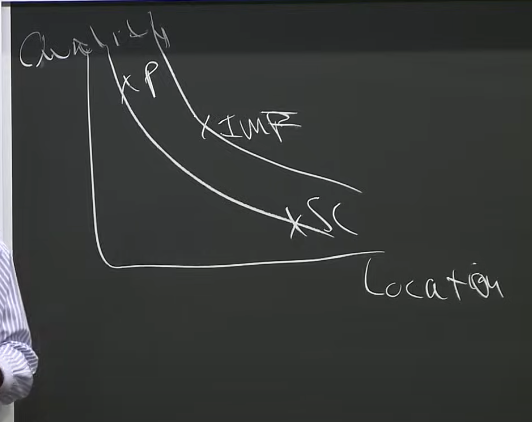 Quality
x P
x IMF
x SC
Location